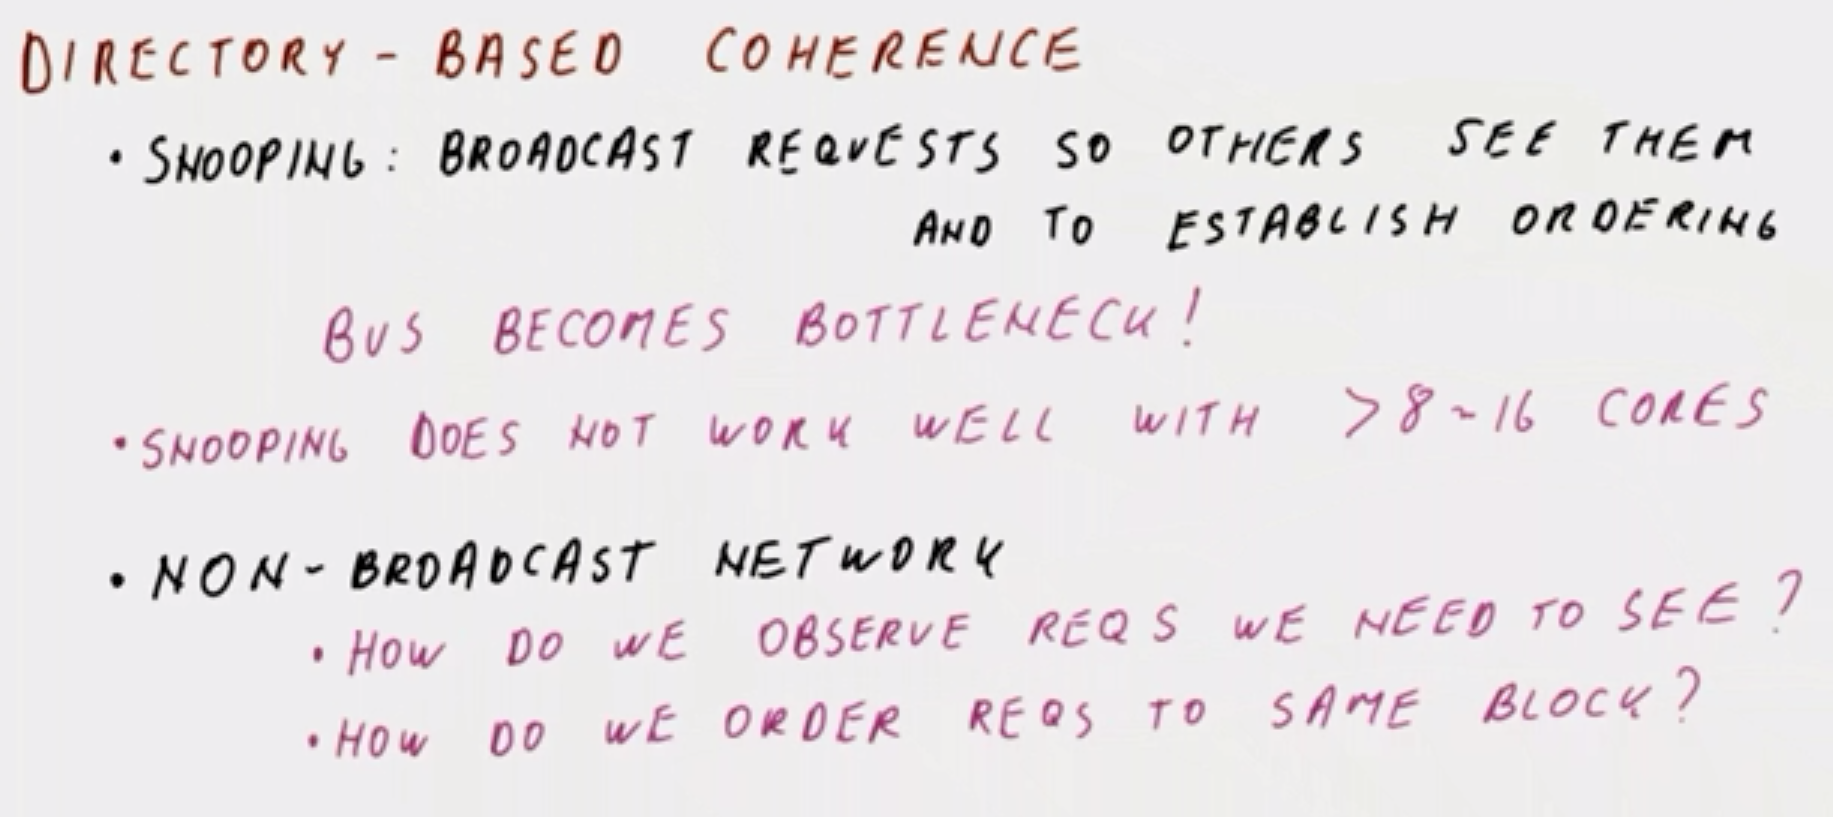 DIRECTORY - BASED COHERENCE
• SNOOPING: BROADCAST REQUESTS SO OTHERS SEE THEM
AND TO ESTABLISH ORDERING
BUS BECOMES BOTTLENECK!
• SNOOPING DOES NOT WORK WELL WITH > 8 ~ 16 CORES
• NON - BROADCAST NETWORK
• HOW DO WE OBSERVE REQS WE NEED TO SEE?
• HOW DO WE ORDER REQS TO SAME BLOCK?